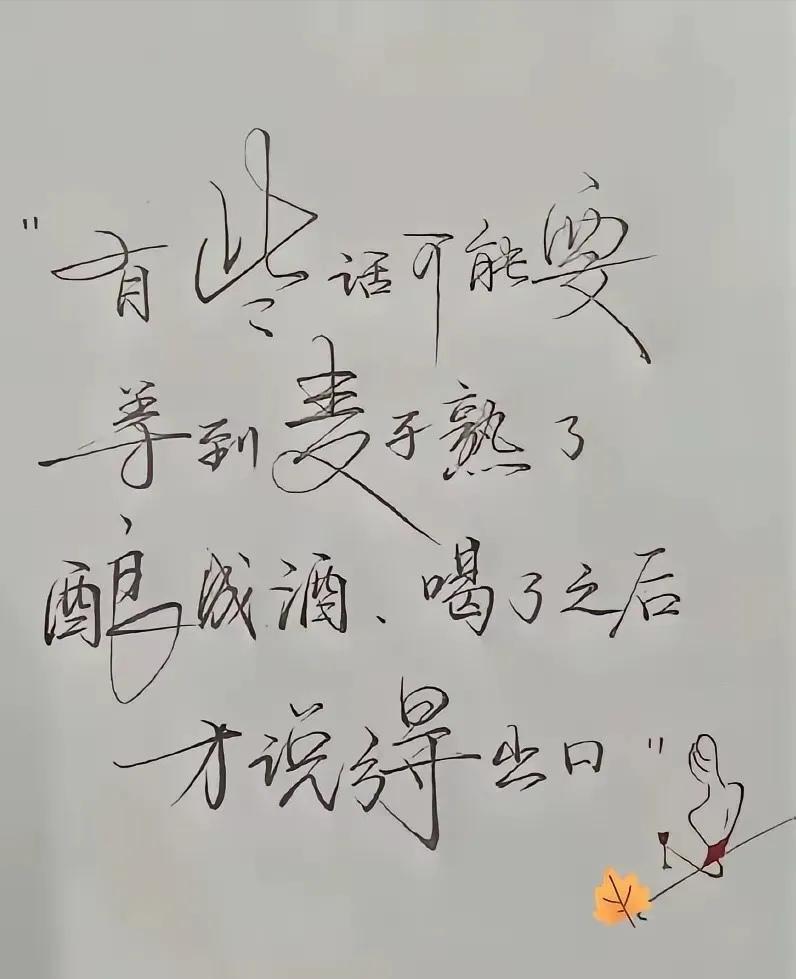 "有些话可能要
等到麦子熟了
酿成酒、喝了之后
才说得出口"